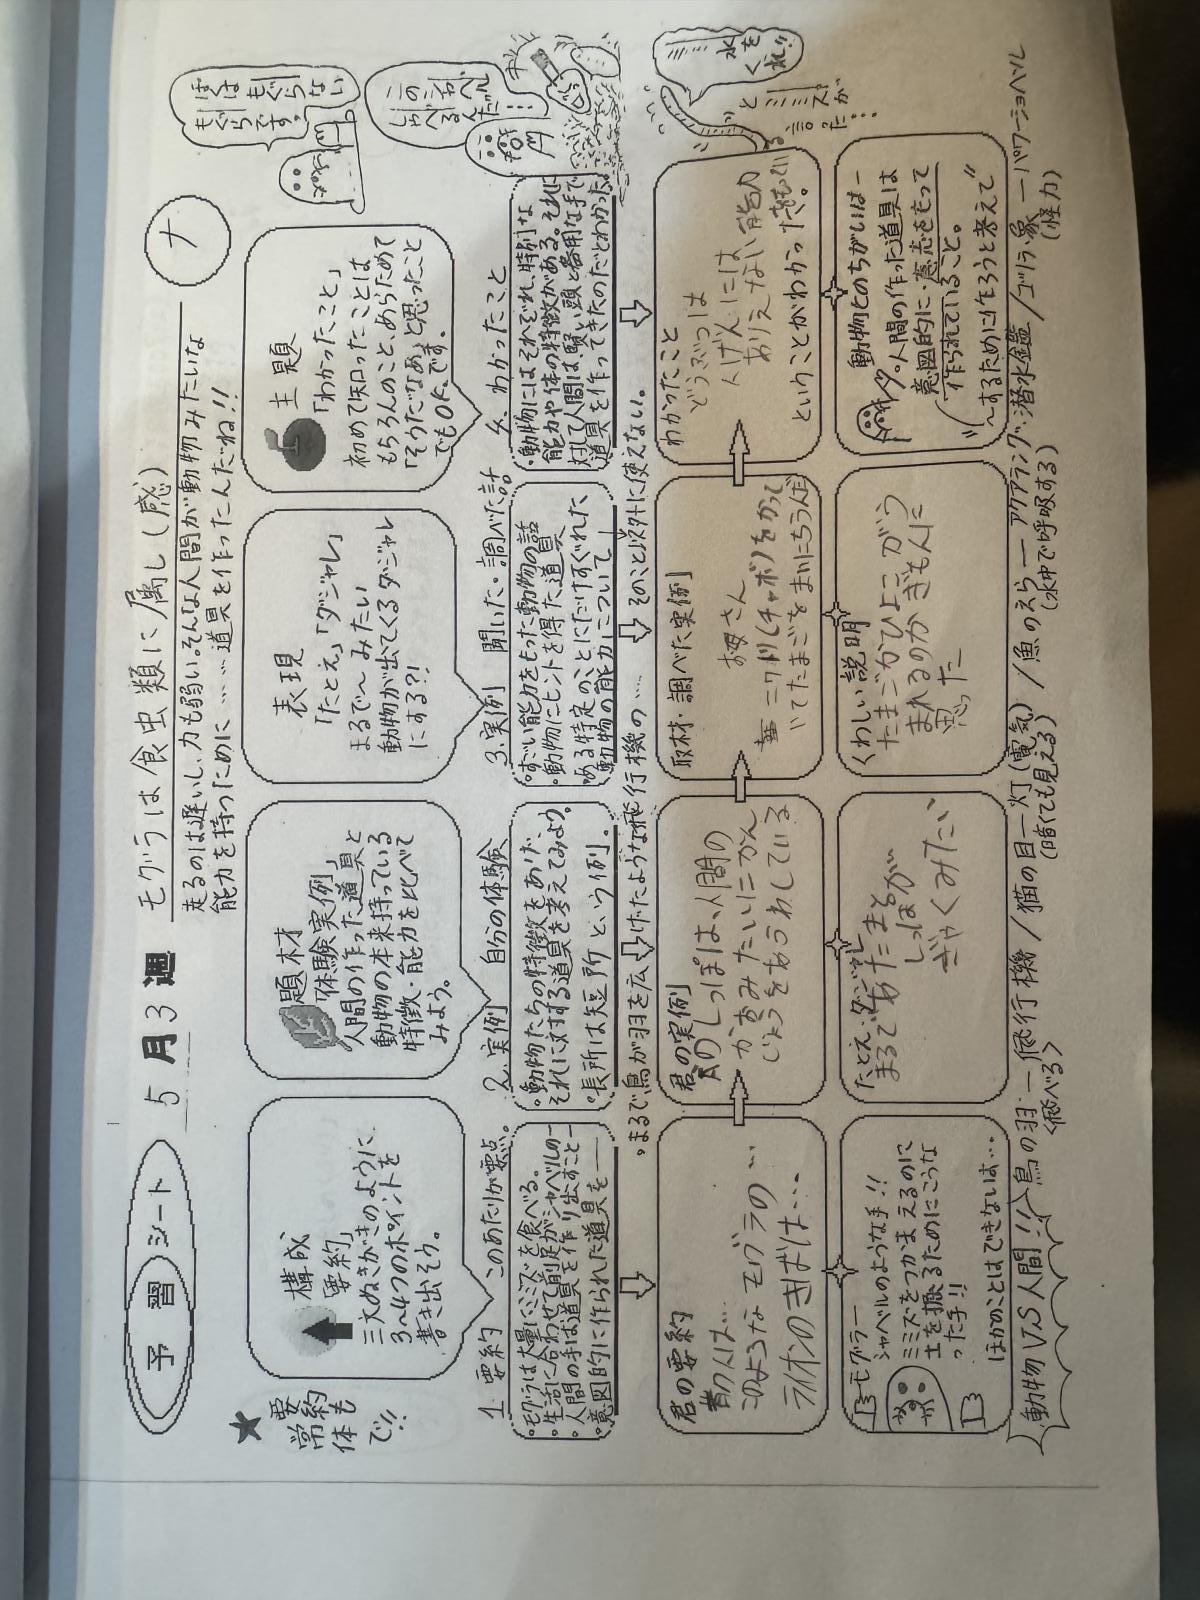 予習シート
5月3週
モグラは食虫類に属し(感)
ナ
走るのは遅いし、力も弱い。そんな人間が動物みたいな
能力を持つために……道具を作ったんだね!!
ぼくはもぐらない
もぐらです。
このシャベル
しゃべるんだ…
★要約も
常体
で!!
構成
「要約」
三文ぬきがきのように
3~4つのポイントを
書き出そう。
題材
「体験実例」
人間の作った道具と
動物の本来持っている
特徴・能力を比べて
みよう。
表現
「たとえ」「ダジャレ」
まるで~みたい
動物が出てくるダジャレ
にする?!
主題
「わかったこと」
初めて知ったことは
もちろんのこと、あらためて
「そうだなあ」と思ったこと
でもOKです。
1. 要約 このあたりが要点。
・モグラは大量にミミズを食べる。
・生活に合わせて前足がシャベルの―
・人間の手は道具を作り出すこと―
・意図的に作られた道具を―
2. 実例 自分の体験
・動物たちの特徴をあげ、
それに対する道具を考えてみよう。
・長所は短所という例。
3. 実例 聞いた・調べた話
・すごい能力をもった動物の話
・動物にヒントを得た道具
・ある特定のことにだけすぐれた
動物の能力について―
4. わかったこと
・動物にはそれぞれ、特別な
能力や体の特徴がある。それに
対して人間は賢い頭と器用な手で
道具を作ってきたのだとわかった。
・まるで鳥が羽を広げたような飛行機の……そのこと以外に使えない。
君の要約
このような モグラの…
ライオンのきばは…
君の実例
のしっぽは、人間の
かおみたいにかん
じょうをあらわしている
取材・調べた実例
お母さん
ニワトリ(チャボ)をかって
いてたまごをまいにちうんだ
わかったこと
どうぶつは
人げんには
ありえない能力
ということがわかった
水を
くれ!!
とミミズが
言った…
モグラ―
シャベルのような手!!
ミミズをつかまえるのに
土を掘るためにこうな
った手!!
ほかのことはできないは…
たとえ・ダジャレ
まるであたまと
しっぽが
ぎゃくみたい
くわしい説明
たまごがひよこがう
まれるのかぎもんに
思った
動物とのちがいは―
・人間の作った道具は
意図的に意志をもって
作られていること。
"~するために作ろうと考えて"
動物VS人間!!
鳥の羽―飛行機/猫の目―灯(電気)/魚のえら―アクアラング・潜水艦/ゴリラ・象―パワーショベル
<飛べる>
(暗くても見える)
(水中で呼吸する)
(怪力)